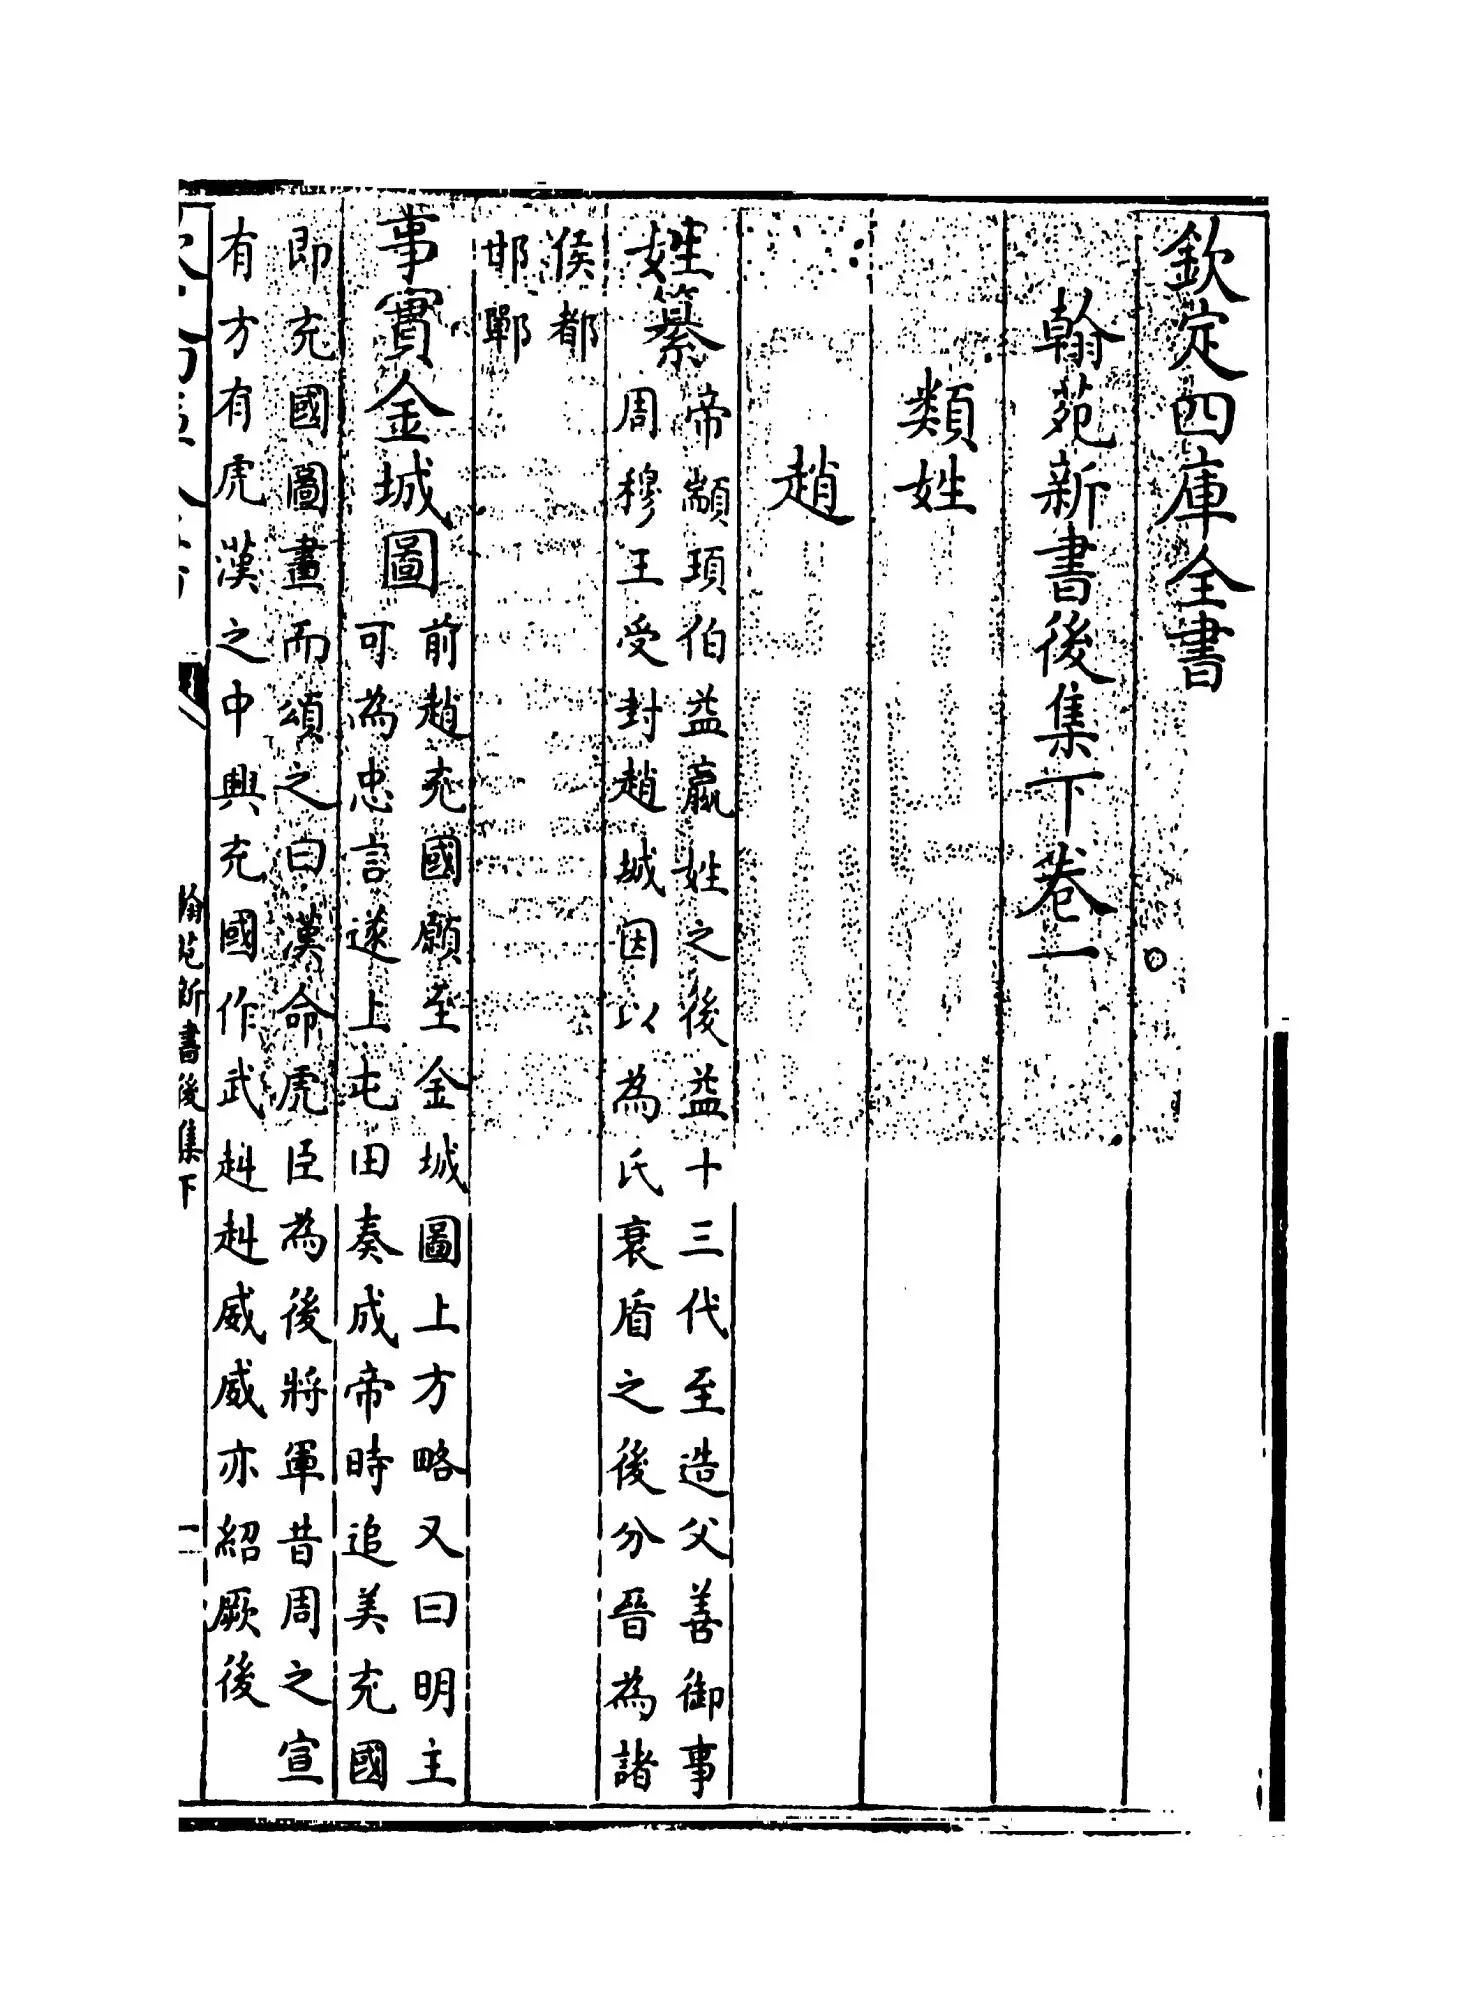 欽定四庫全書
翰苑新書後集下卷一
類姓
趙
姓纂
帝顓頊伯益嬴姓之後益十三代至造父善御事
周穆王受封趙城因以為氏衰盾之後分晉為諸
侯都
邯鄲
事實金城圖
前趙充國願至金城圖上方略又曰明主
可為忠言遂上屯田奏成帝時追美充國
即充國圖畫而頌之曰漢命虎臣為後將軍昔周之宣
有方有虎漢之中興充國作武赳赳威威亦紹厥後
翰苑新書後集下
一